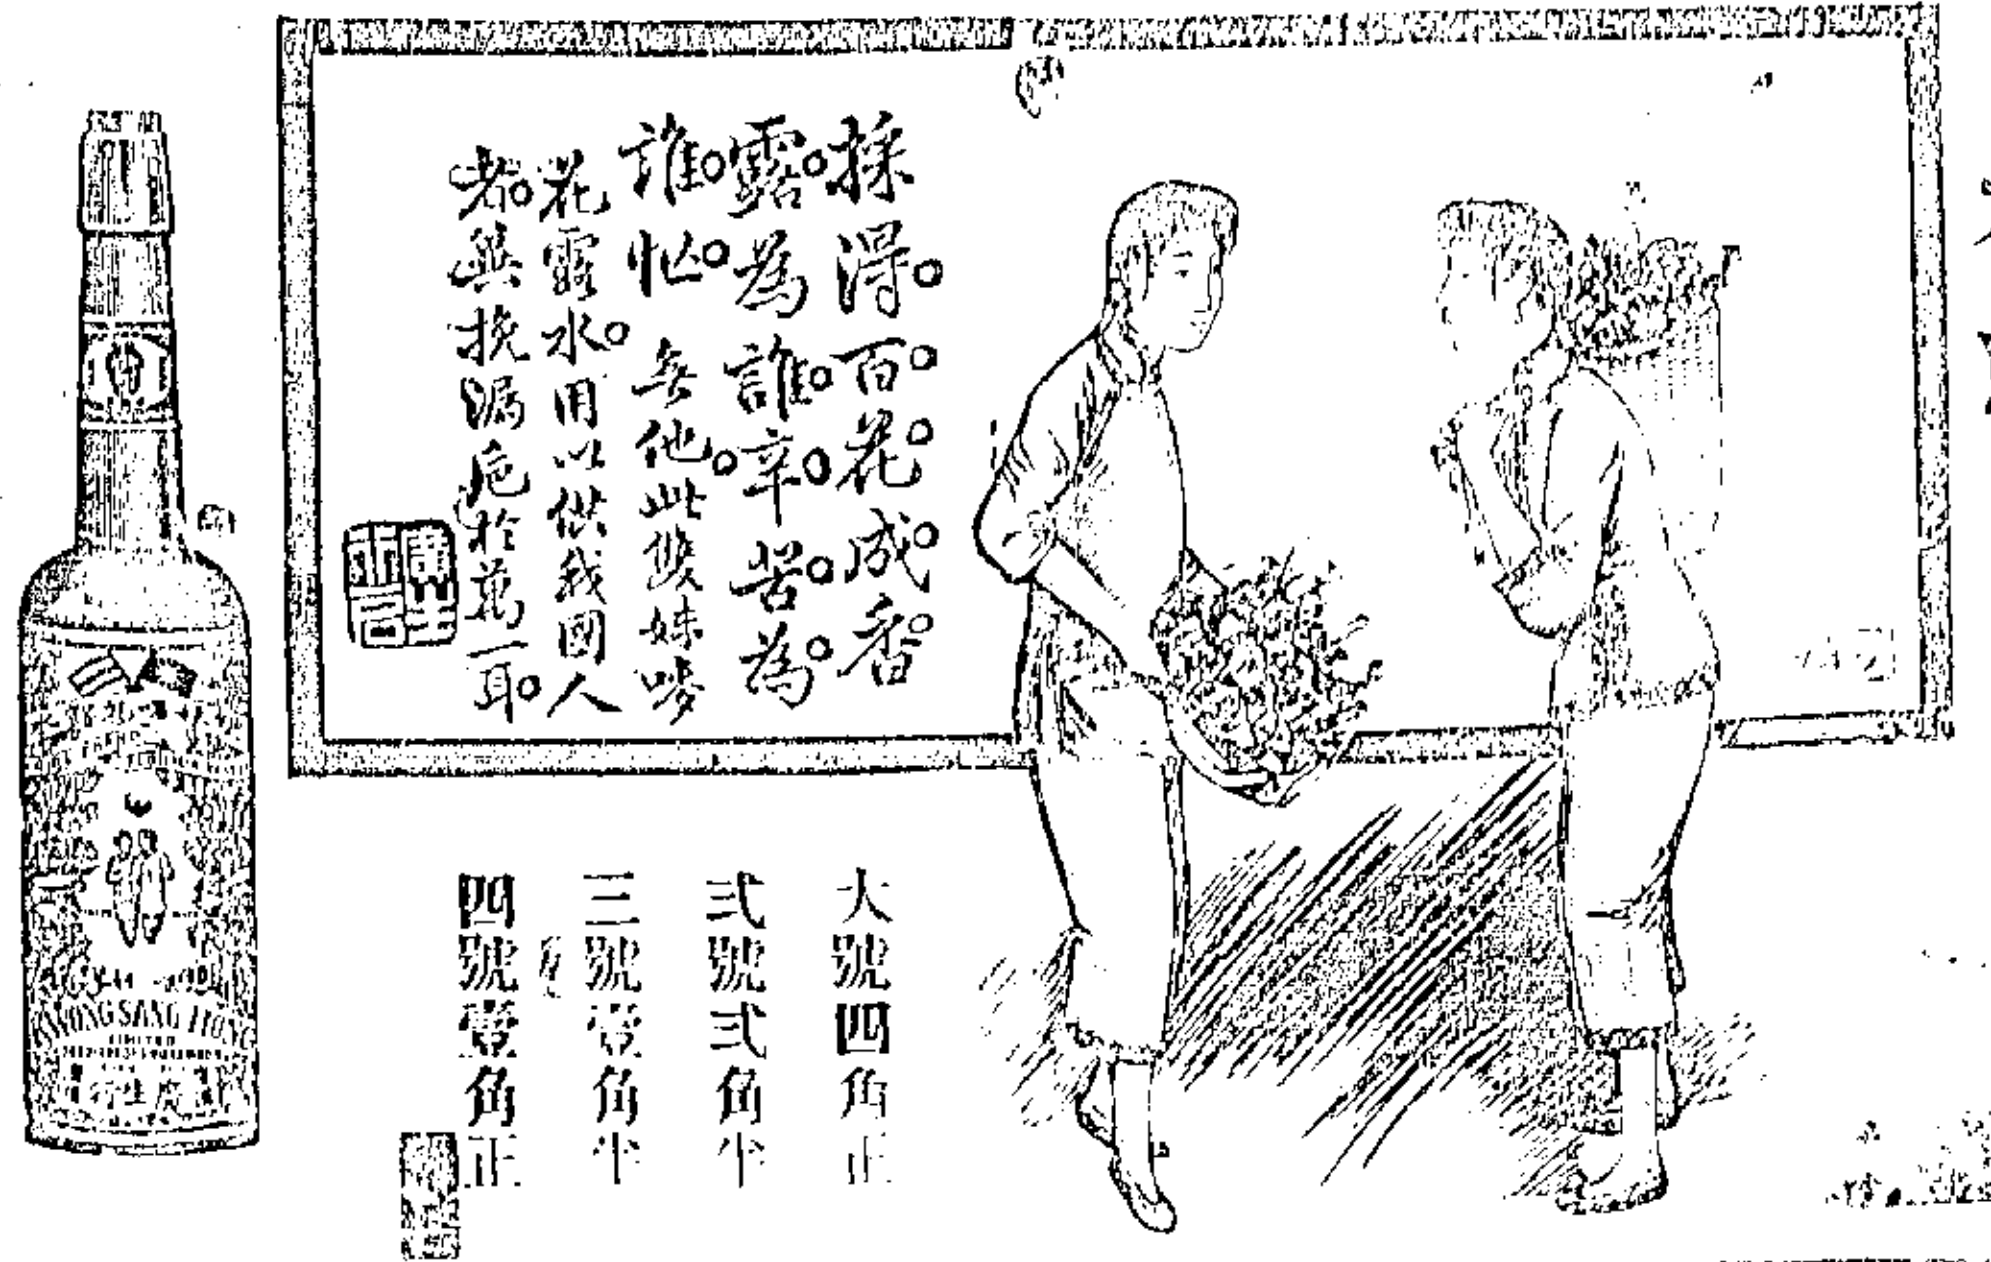 採得。百。花。成。香。
露。為誰。辛。苦。為。
誰。忙。無他。此雙妹嘜
花露水。用以供我國人
者。與挽漏卮於萬一耳。
廣生
行言
大號四角正
弍號弍角半
三號壹角半
四號壹角正
KWONG SANG HONG
LIMITED
行生廣